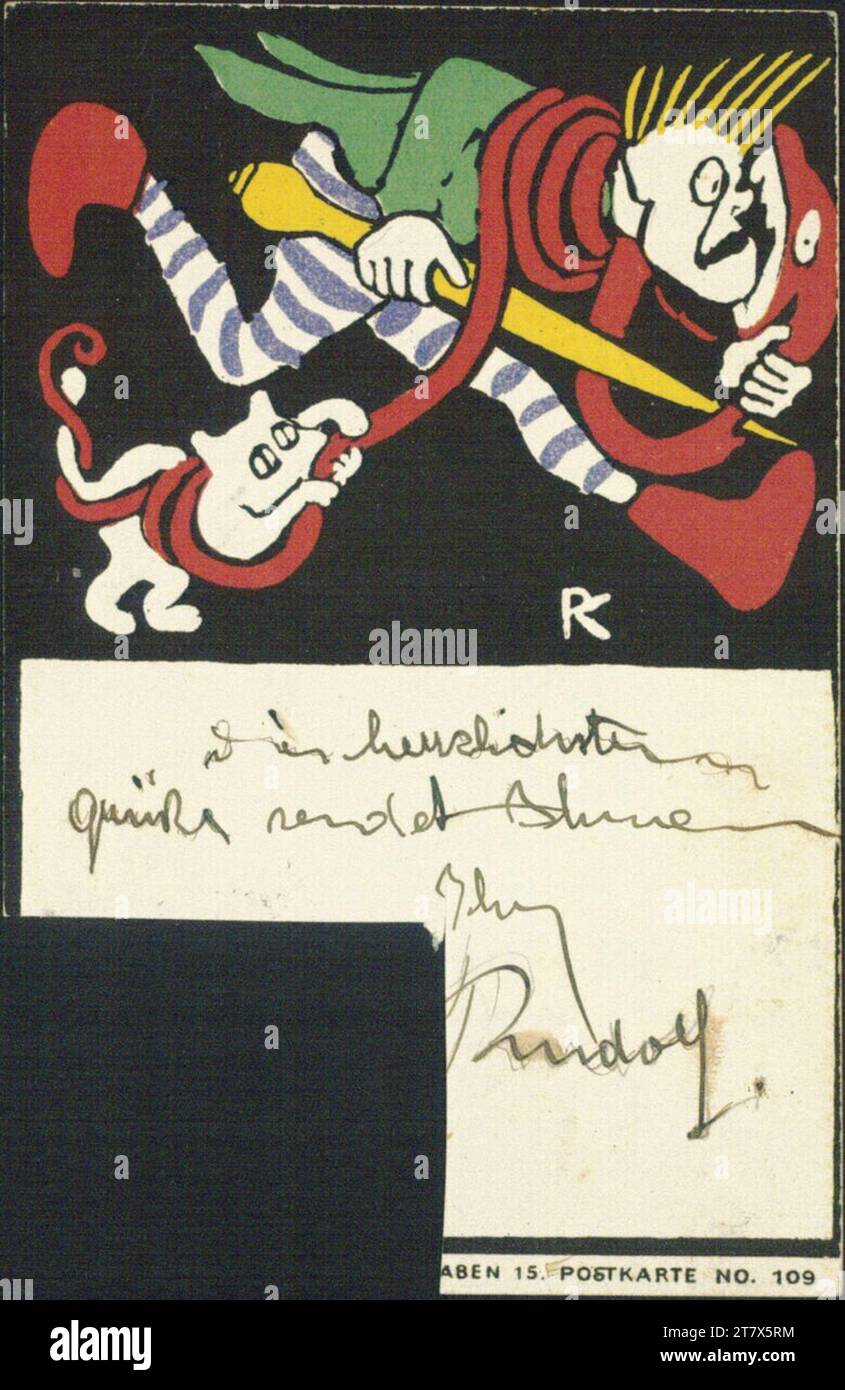 RK
Die herzlichsten
Grüße sendet Ihnen
Ihr
Rudolf.
ABEN 15. POSTKARTE NO. 109
alamy
Image ID: 2T7X5RM
www.alamy.com